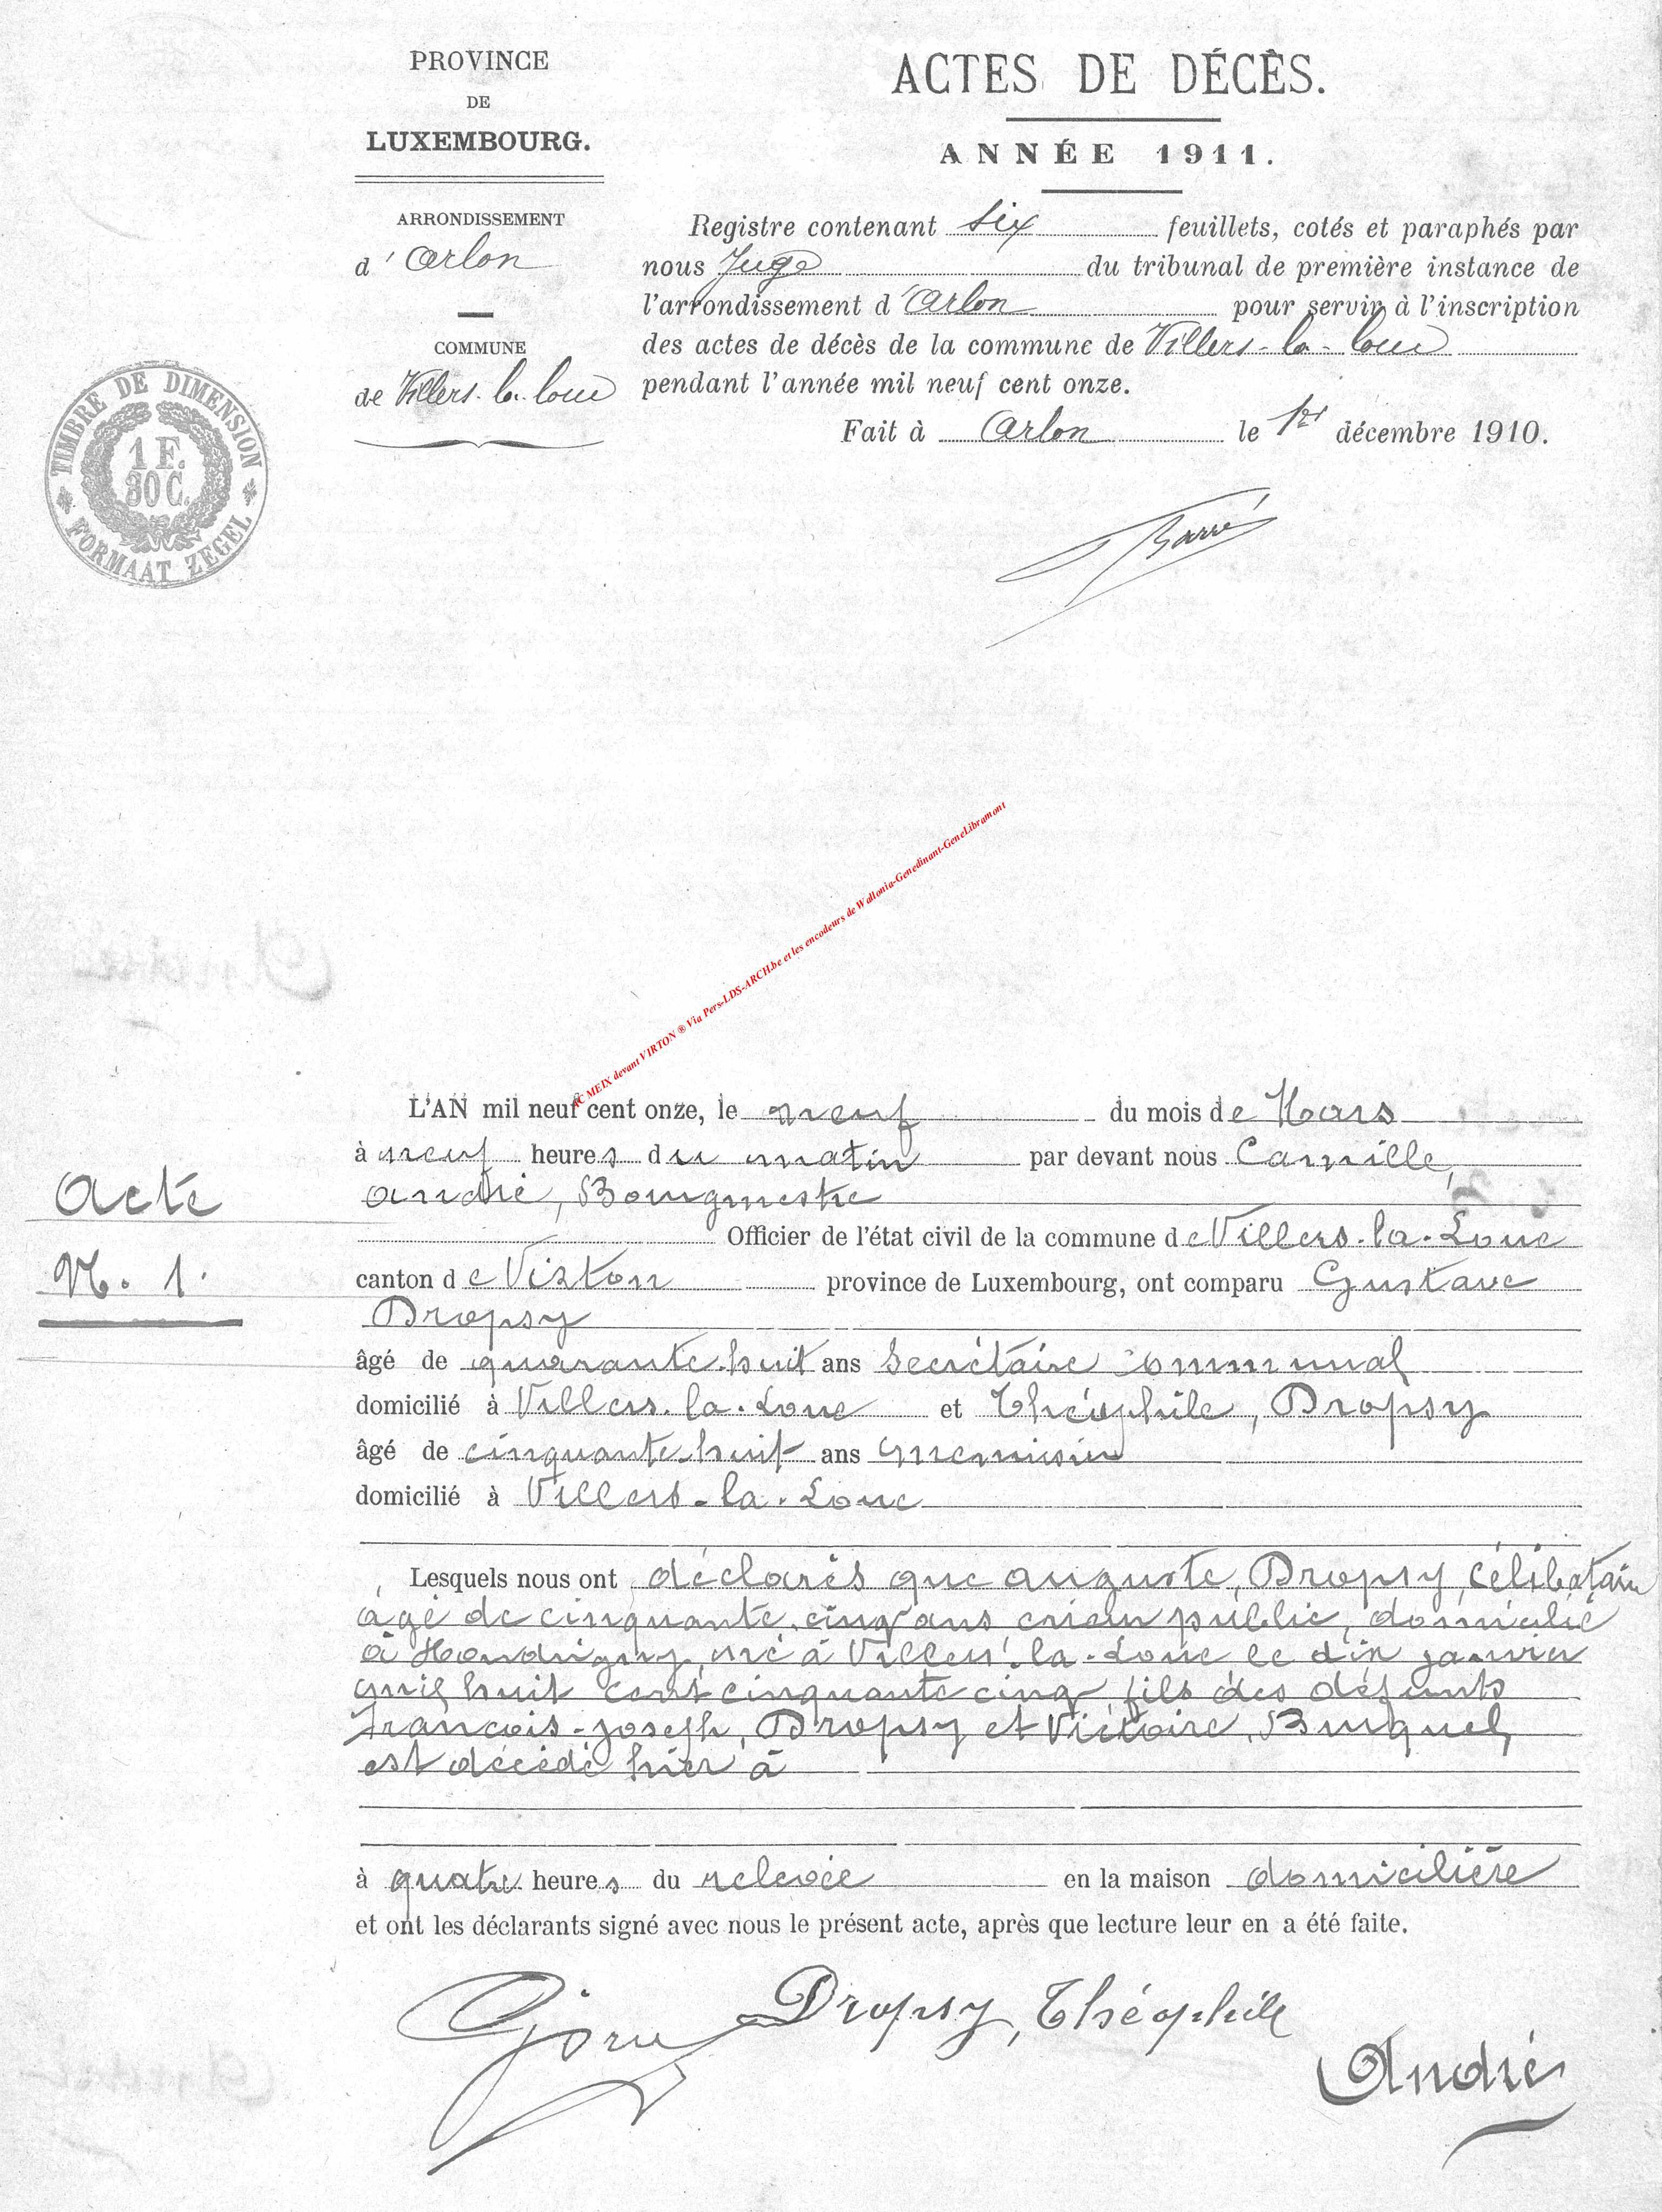 PROVINCE
DE
LUXEMBOURG.
ARRONDISSEMENT
d'Arlon
COMMUNE
de Villers-la-loue
TIMBRE DE DIMENSION
1 F.
30 C.
FORMAAT ZEGEL
ACTES DE DÉCÈS.
ANNÉE 1911.
Registre contenant six feuillets, cotés et paraphés par
nous Juge du tribunal de première instance de
l'arrondissement d'Arlon pour servir à l'inscription
des actes de décès de la commune de Villers-la-loue
pendant l'année mil neuf cent onze.
Fait à Arlon le 1er décembre 1910.
AC MEIX devant VIRTON ® Via Pers-LDS-ARCH.be et les encodeurs de Wallonia-Genedinant-GeneLibramont
Acte
N. 1.
L'AN mil neuf cent onze, le neuf du mois de Mars
à neuf heures du matin par devant nous Camille,
André, Bourgmestre
Officier de l'état civil de la commune de Villers-la-Loue
canton de Virton province de Luxembourg, ont comparu Gustave
Dropsy
âgé de quarante-huit ans Secrétaire communal
domicilié à Villers-la-Loue et Théophile, Dropsy
âgé de cinquante-huit ans menuisier
domicilié à Villers-la-Loue
Lesquels nous ont déclarés que auguste, Dropsy, célibataire
âgé de cinquante-cinq ans crieur public, domicilié
à Houdrigny, né à Villers-la-Loue le dix janvier
mil huit cent cinquante cinq, fils des défunts
François-Joseph, Dropsy et Victoire, Buquel,
est décédé hier à
à quatre heures du relevée en la maison domicilière
et ont les déclarants signé avec nous le présent acte, après que lecture leur en a été faite.
Dropsy, Théophile
André